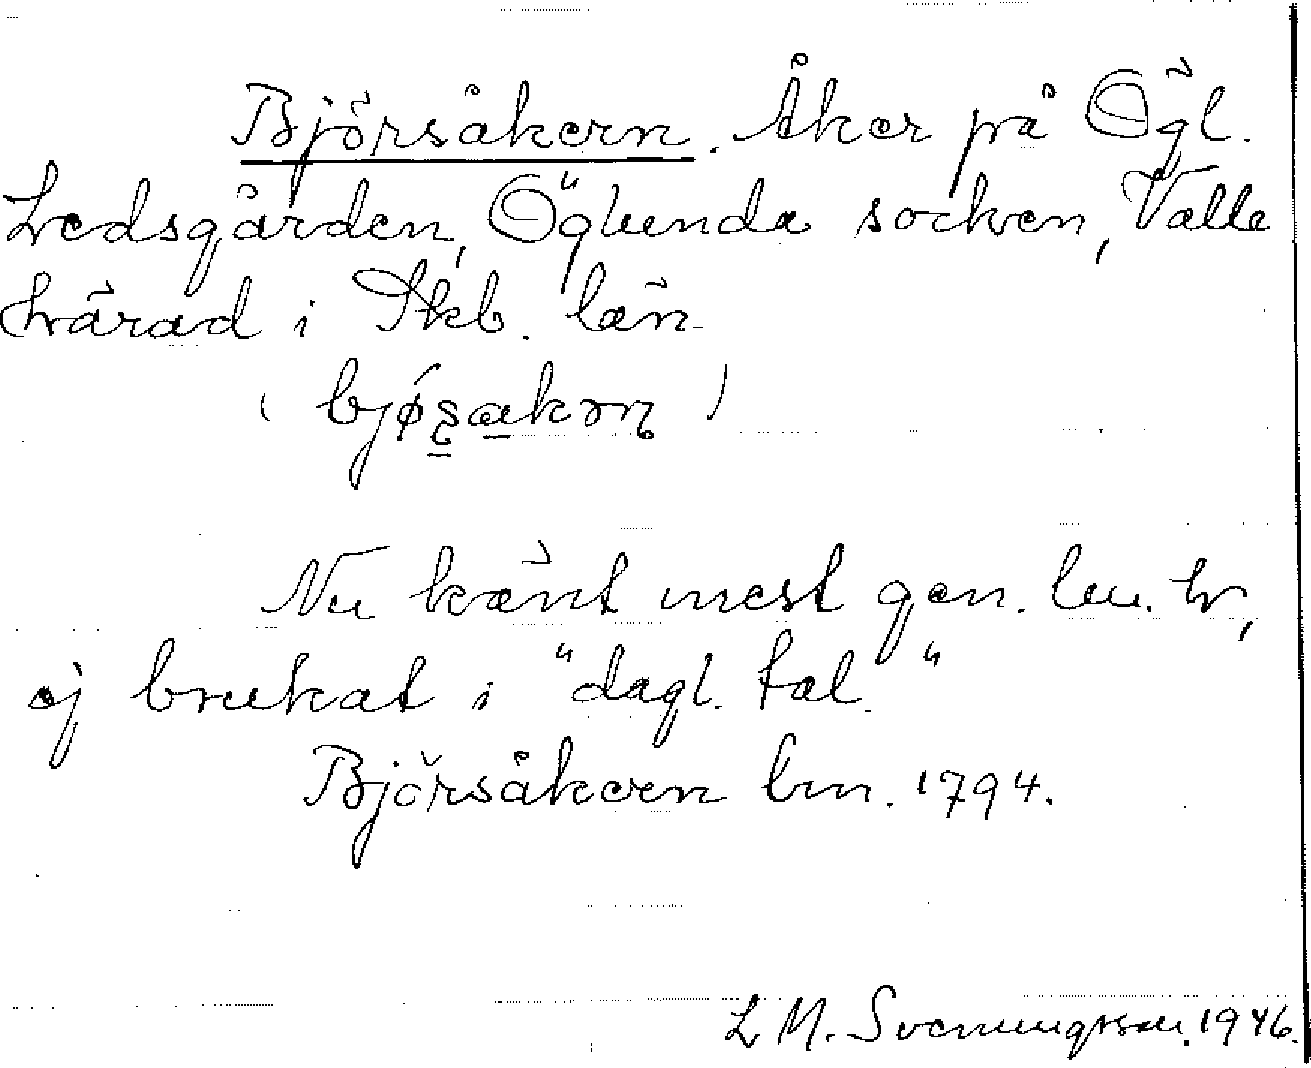 Björsåkern. Åker på Ögl.
Ledsgården, Öglunda socken, Valle
härad i Skb. län.
( bjø̀ʂakəɳ )
Nu känt mest gen. lm. h,
ej brukat i "dagl. tal."
Björsåkern lm. 1794.
L M. Svenungsson. 1946.